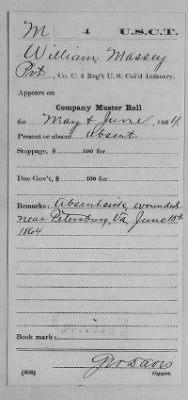 M 4 U.S.C.T.
William Massey
Pvt., Co. C, 4 Reg't U. S. Col'd Infantry.
Appears on
Company Muster Roll
for May & June, 1864.
Present or absent Absent
Stoppage, $ 100 for
Due Gov't, $ 100 for
Remarks: Absent sick, wounded
near Petersburg, Va, June 15th
1864
Book mark:
Geo Davis
(358) Copyist.